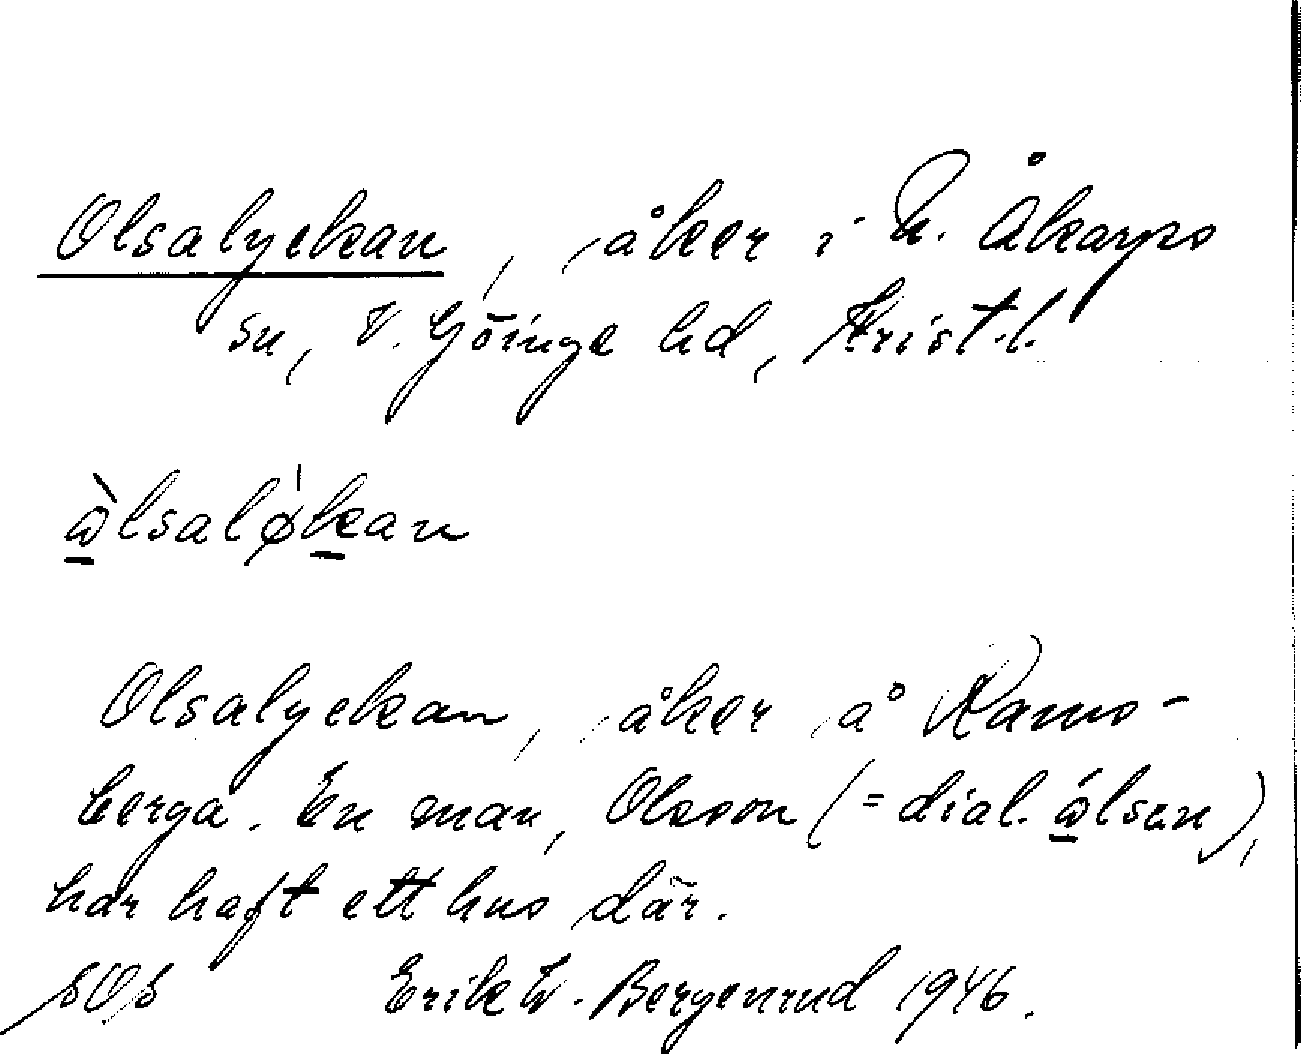 Olsalyckan, åker i N. Åkarps
sn, V. Göinge hd, Krist. l.
ὼ̱lsalø̍ḵan
Olsalyckan, åker å Rams-
berga. En man, Olsson (= dial. ώ̱lsen),
har haft ett hus där.
SOS Erik W. Bergenrud 1946.